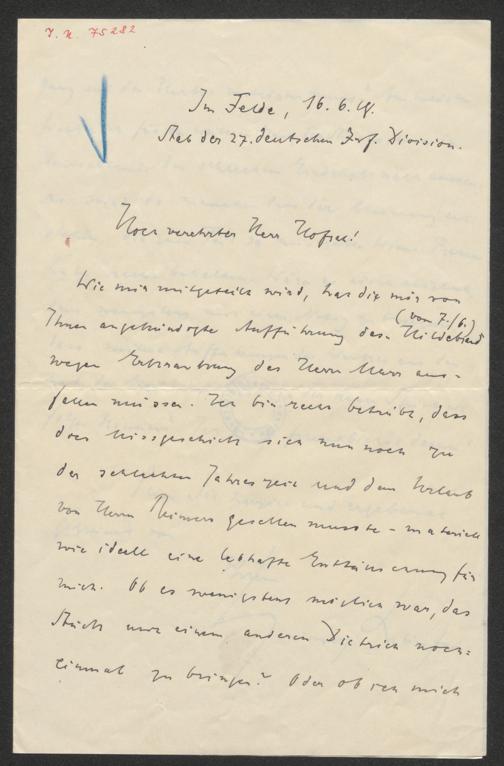 I. N. 75282
Im Felde, 16. 6. 18.
Stab der 27. deutschen Inf. Division.
Hoch verehrter Herr Hofrat!
Wie mir mitgeteilt wird, hat die mir von
(vom 7./6.)
Ihnen angekündigte Aufführung des Hildebrand
wegen Erkrankung des Herrn Murr aus-
fallen müssen. Ich bin recht betrübt, dass
dies Missgeschick sich nun noch zu
der schlechten Jahreszeit und dem Urlaub
von Herrn Reimers gesellen musste – materiell
wie ideell eine lebhafte Enttäuschung für
mich. Ob es wenigstens möglich war, das
Stück mit einem anderen Dietrich noch-
einmal zu bringen? Oder ob ich mich